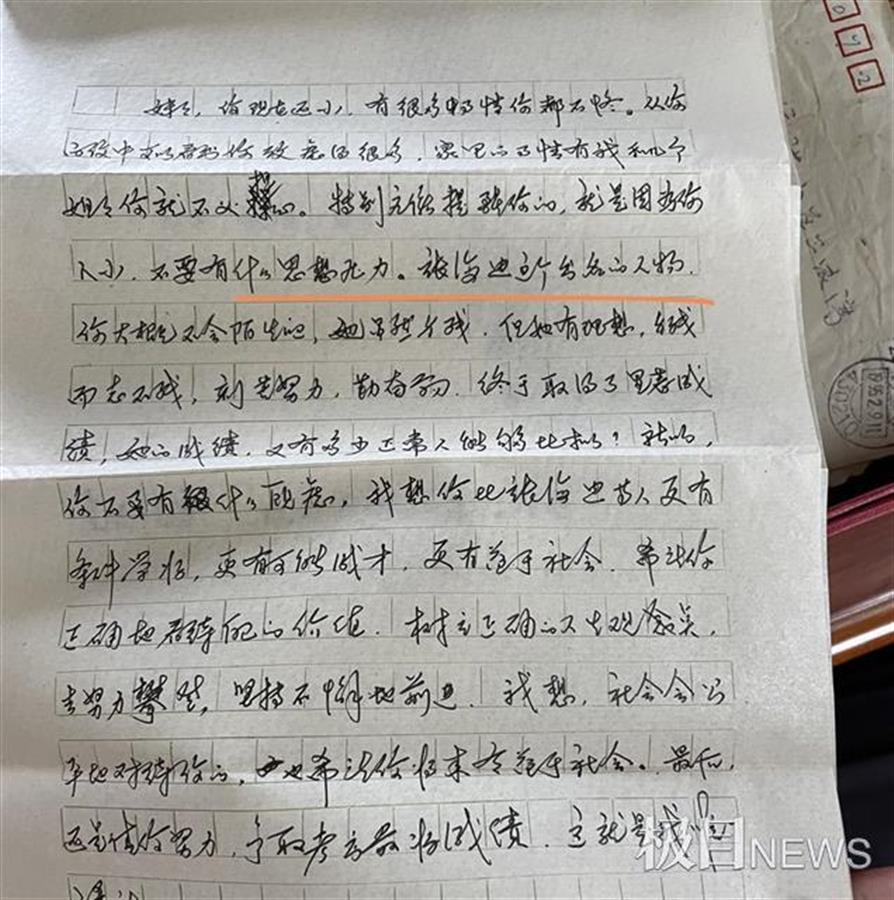 妹妹，你现在还小，有很多事情你都不懂。从你
的致中可以看到你考虑的很多，家里的事情有我和几个
姐姐你就不必操心。特别允许提醒你的，就是因为你
人小，不要有什么思想压力。张海迪这个出名的人物，
你大概不会陌生吧，她虽然身残，但她有理想，身残
而志不残，刻苦努力，勤奋学习，终于取得了显著成
绩，她的成绩，又有多少正常人能够比拟？所以，
你不要有什么顾虑，我想你比张海迪等人更有
条件学好，更有可能成才，更有益于社会。希望你
正确地看待自己的价值，树立正确的人生观
去努力攀登，坚持不懈地前进。我想，社会会公
平地对待你的，也希望你将来有益于社会。最后，
还是请你努力，争取考出最好成绩，这就是我们
极目NEWS
0 7 2
1995.2.9.11